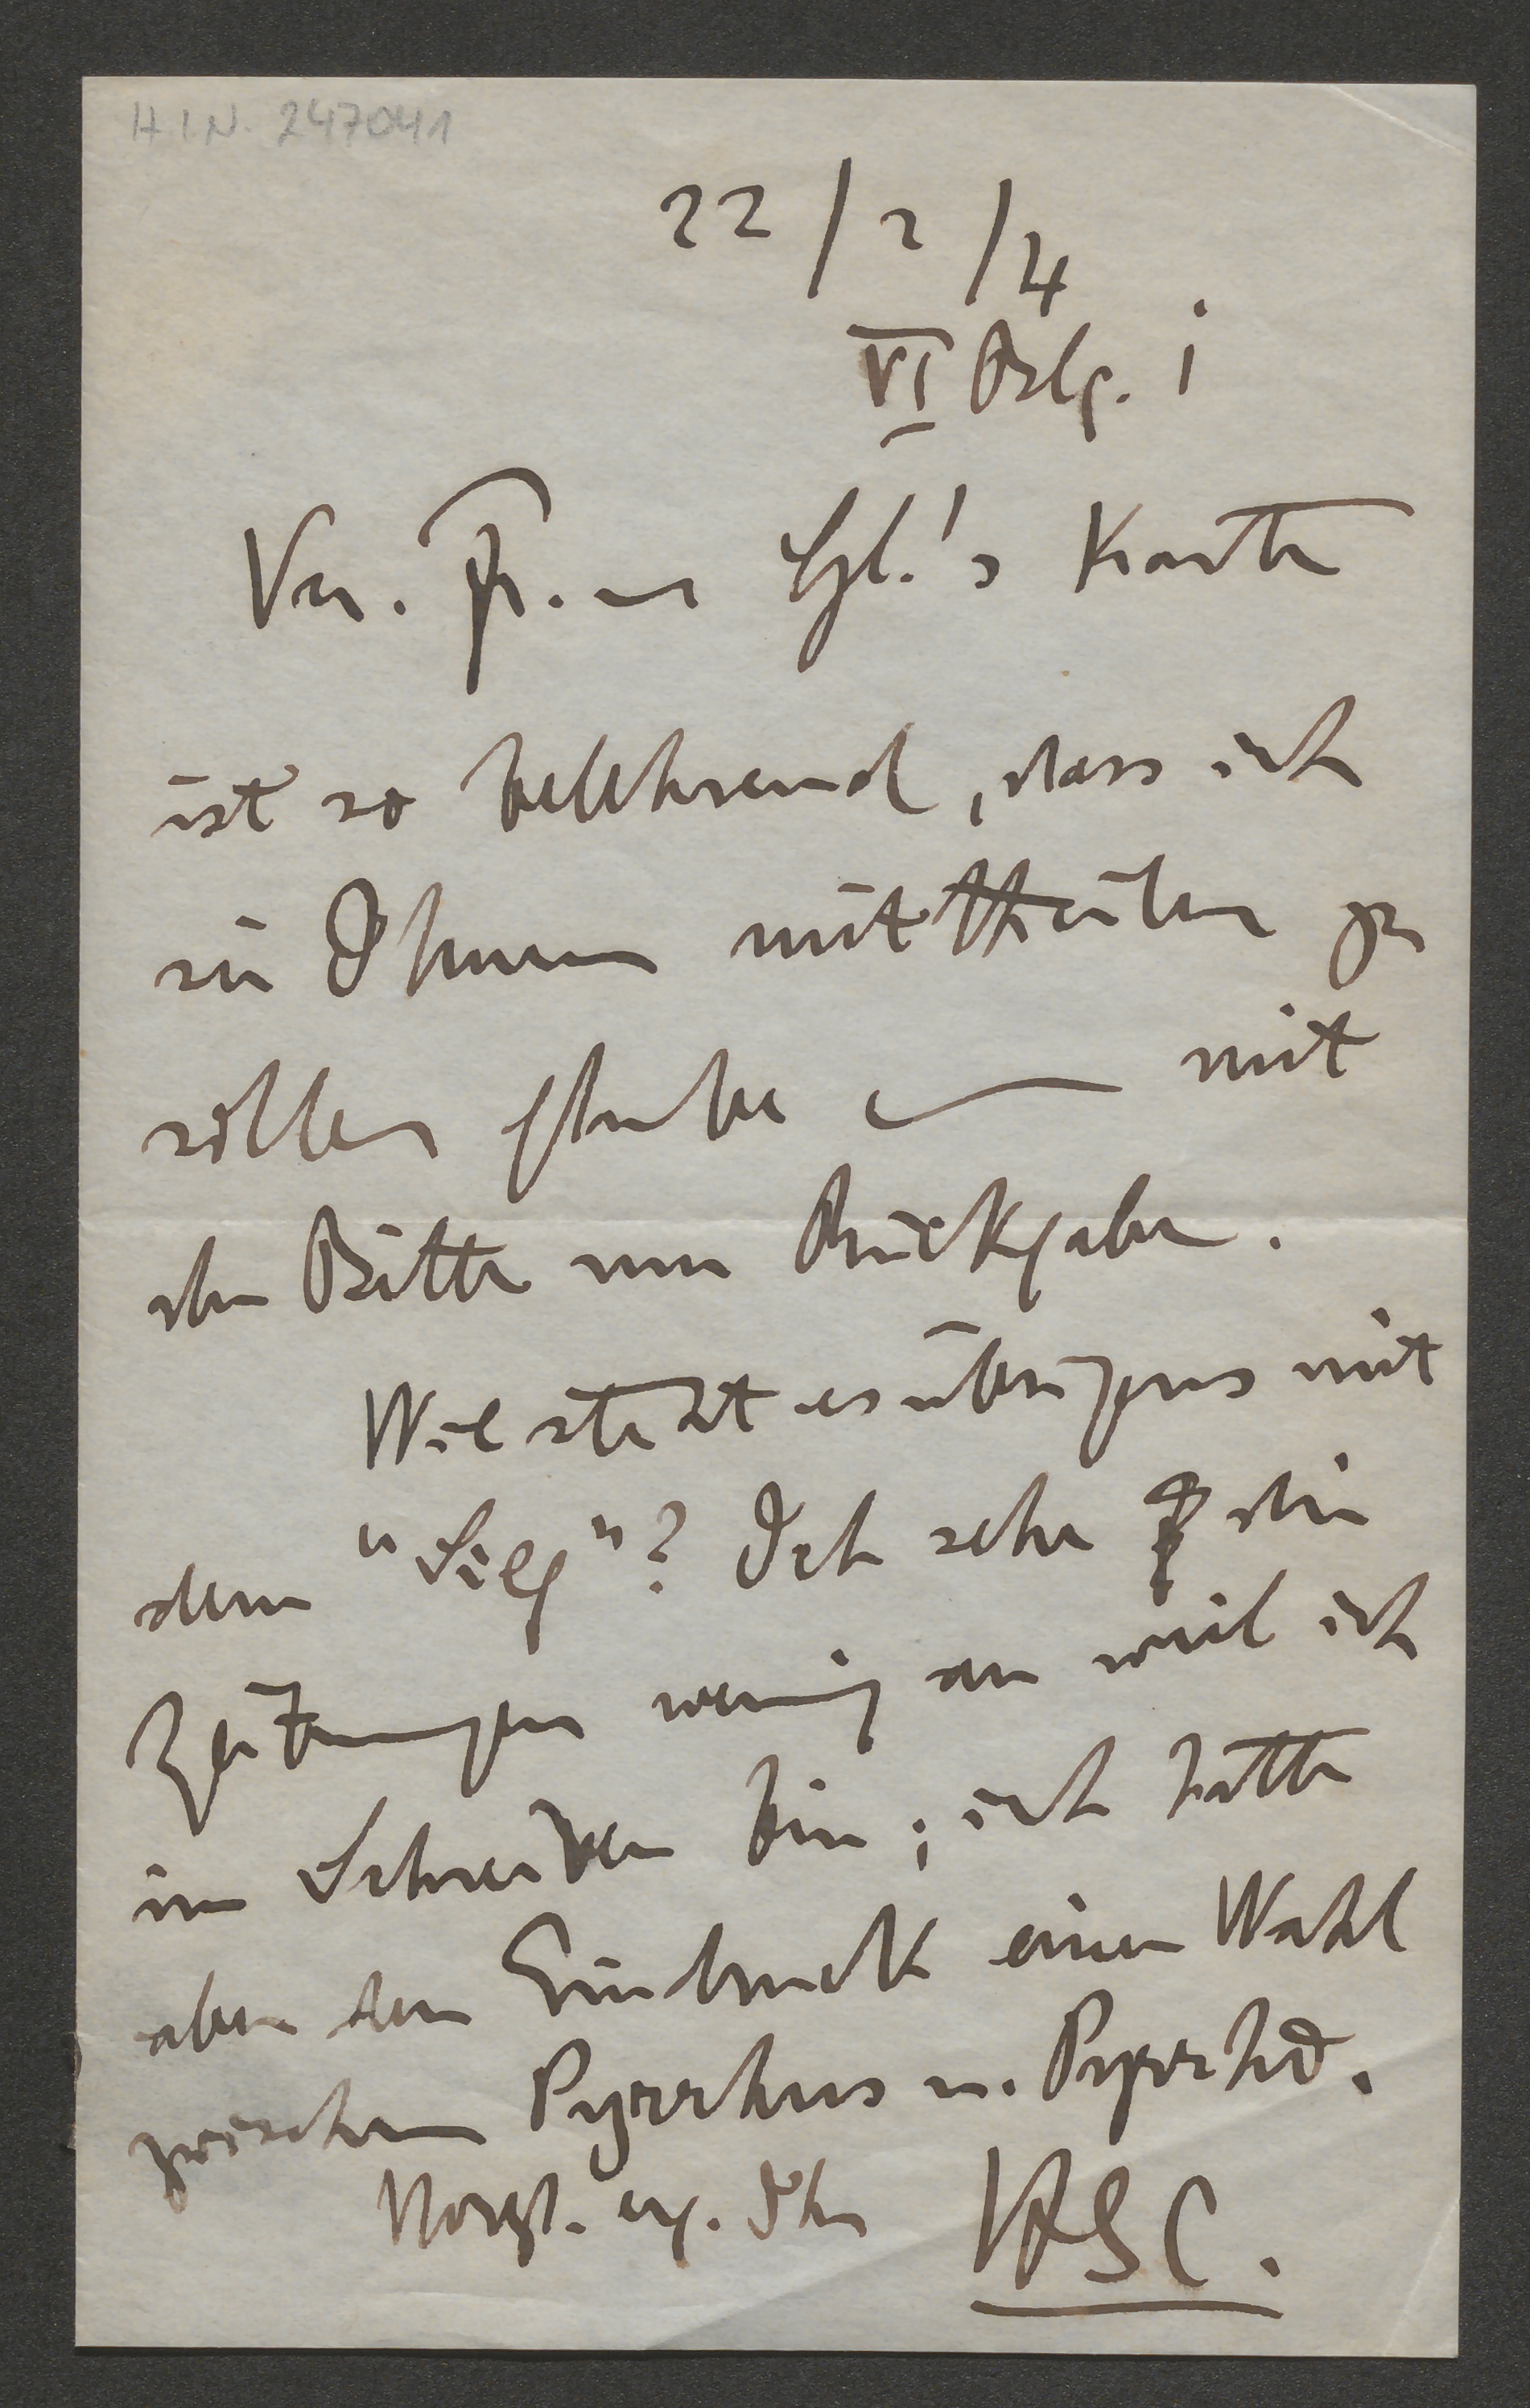 H.I.N. 247041
22/2/4
VI Blg. 1
Ver. Fr. u Gl.'s Karte
ist so belehrend, dass ich
sie Ihnen mittheilen zu
sollen glaube — mit
der Bitte um Rückgabe.
Wie steht es übrigens mit
dem "Sieg"? Ich sehe die
Zeitungen wenig an weil ich
im Schreiben bin; ich hatte
aber den Eindruck einer Wahl
zwischen Pyrrhus u. Pyrrhus.
Ihr HSC.